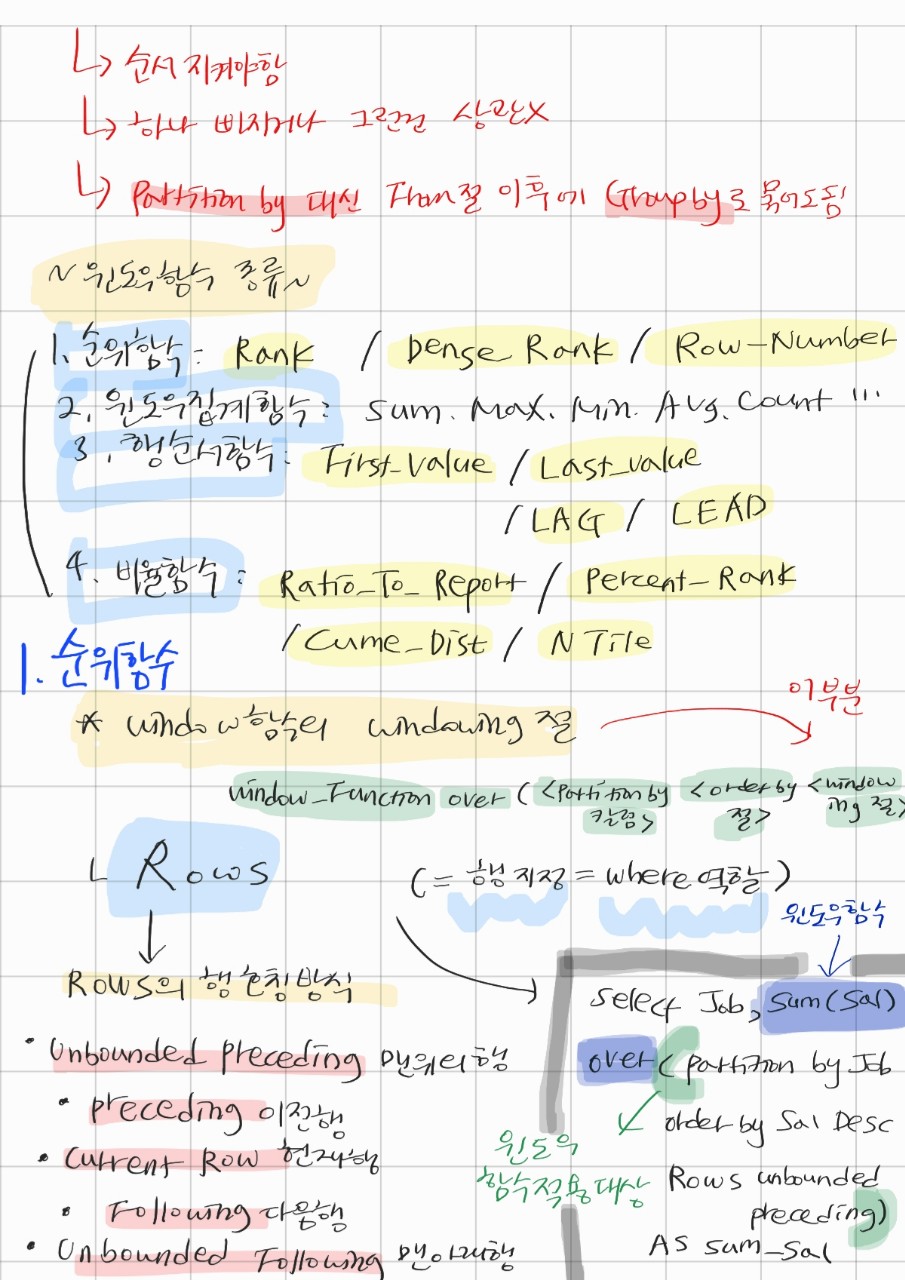 ↳ 순서 지켜야함
↳ 하나 빠지거나 그런건 상관X
↳ Partition by 대신 From절 이후에 Group by로 묶어도됨
~ 윈도우함수 종류 ~
1. 순위함수 : Rank / Dense Rank / Row-Number
2. 윈도우집계함수 : Sum. Max. Min. Avg. Count ...
3. 행순서함수 : First_Value / Last_value
/ LAG / LEAD
4. 비율함수 : Ratio_To_Report / Percent-Rank
/ Cume_Dist / N Tile
1. 순위함수
* window함수의 windowing 절
이부분
window_Function over ( <partition by 칼럼> <order by 절> <windowing 절>
ㄴ Rows (= 행 지정 = where 역할)
윈도우함수
Rows의 행 호칭방식
• Unbounded preceding 맨위의행
• preceding 이전행
• Current Row 현재행
• Following 다음행
• Unbounded Following 맨아래행
select Job, sum(sal)
over ( partition by Job
order by Sal Desc
Rows unbounded
preceding)
As sum_sal
윈도우
함수적용대상